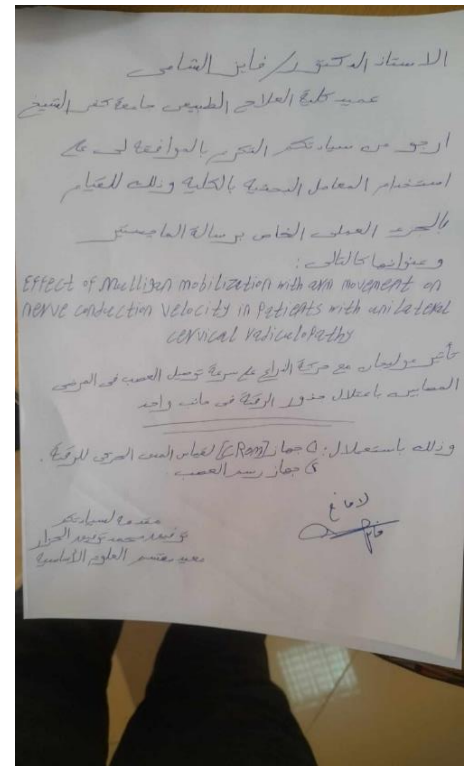 الاستاذ الدكتور / فايز الشامى
عميد كلية العلاج الطبيعى جامعة كفر الشيخ
ارجو من سيادتكم التكرم بالموافقة لى على
استخدام المعامل البحثية بالكلية وذلك للقيام
بالجزء العملى الخاص برسالة الماجستير
وعنوانها كالتالى :
Effect of Mulligan mobilization with arm movement on
nerve conduction velocity in Patients with unilateral
cervical radiculopathy
تأثير موليجان مع حركة الذراع على سرعة توصيل العصب فى المرضى
المصابين باعتلال جذور الرقبة فى جانب واحد
وذلك باستعمال : ① جهاز [CRom] لقياس المدى الحركى للرقبة .
② جهاز رسم العصب .
لا مانع
فايز
مقدمه لسيادتكم
محمد توحيد
معيد بقسم العلوم الأساسية